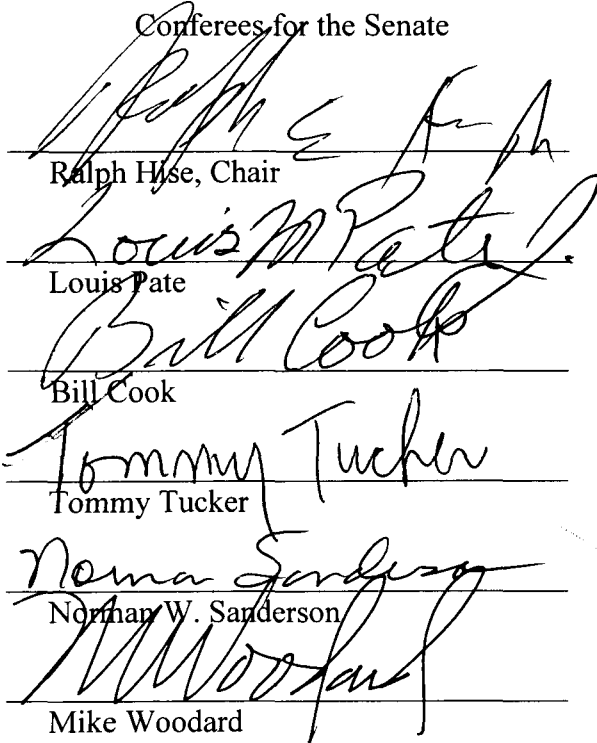 Conferees for the Senate
Ralph E H
Ralph Hise, Chair
Louis M Pate, J.
Louis Pate
Bill Cook
Bill Cook
Tommy Tucker
Tommy Tucker
Norman Sanderson
Norman W. Sanderson
M Woodard
Mike Woodard